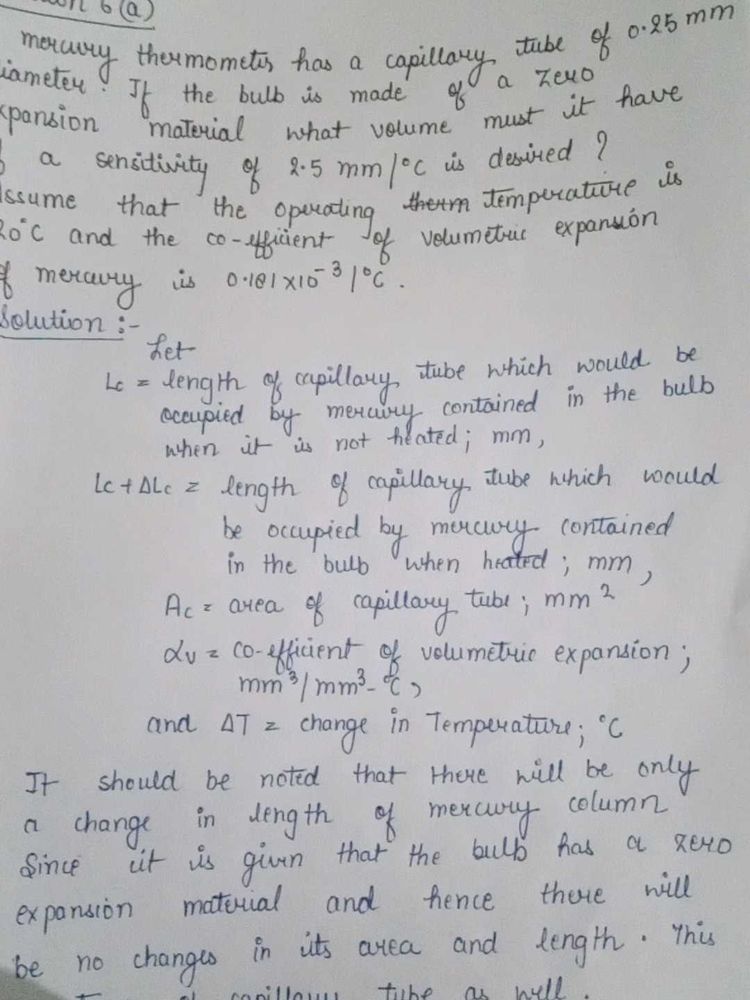 6(a)
mercury thermometer has a capillary tube of 0.25 mm
iameter. If the bulb is made of a zero
xpansion material what volume must it have
a sensitivity of 2.5 mm/°C is desired ?
ssume that the operating therm temperature is
20°C and the co-efficient of volumetric expansion
f mercury is 0.181x10⁻³/°C.
Solution :-
Let
Lc = length of capillary tube which would be
occupied by mercury contained in the bulb
when it is not heated; mm,
Lc + ΔLc = length of capillary tube which would
be occupied by mercury contained
in the bulb when heated ; mm,
Ac = area of capillary tube; mm²
αv = co-efficient of volumetric expansion;
mm³/mm³-°C,
and ΔT = change in Temperature; °C
It should be noted that there will be only
a change in length of mercury column
Since it is given that the bulb has a zero
expansion material and hence there will
be no changes in its area and length. This
capillary tube as well.